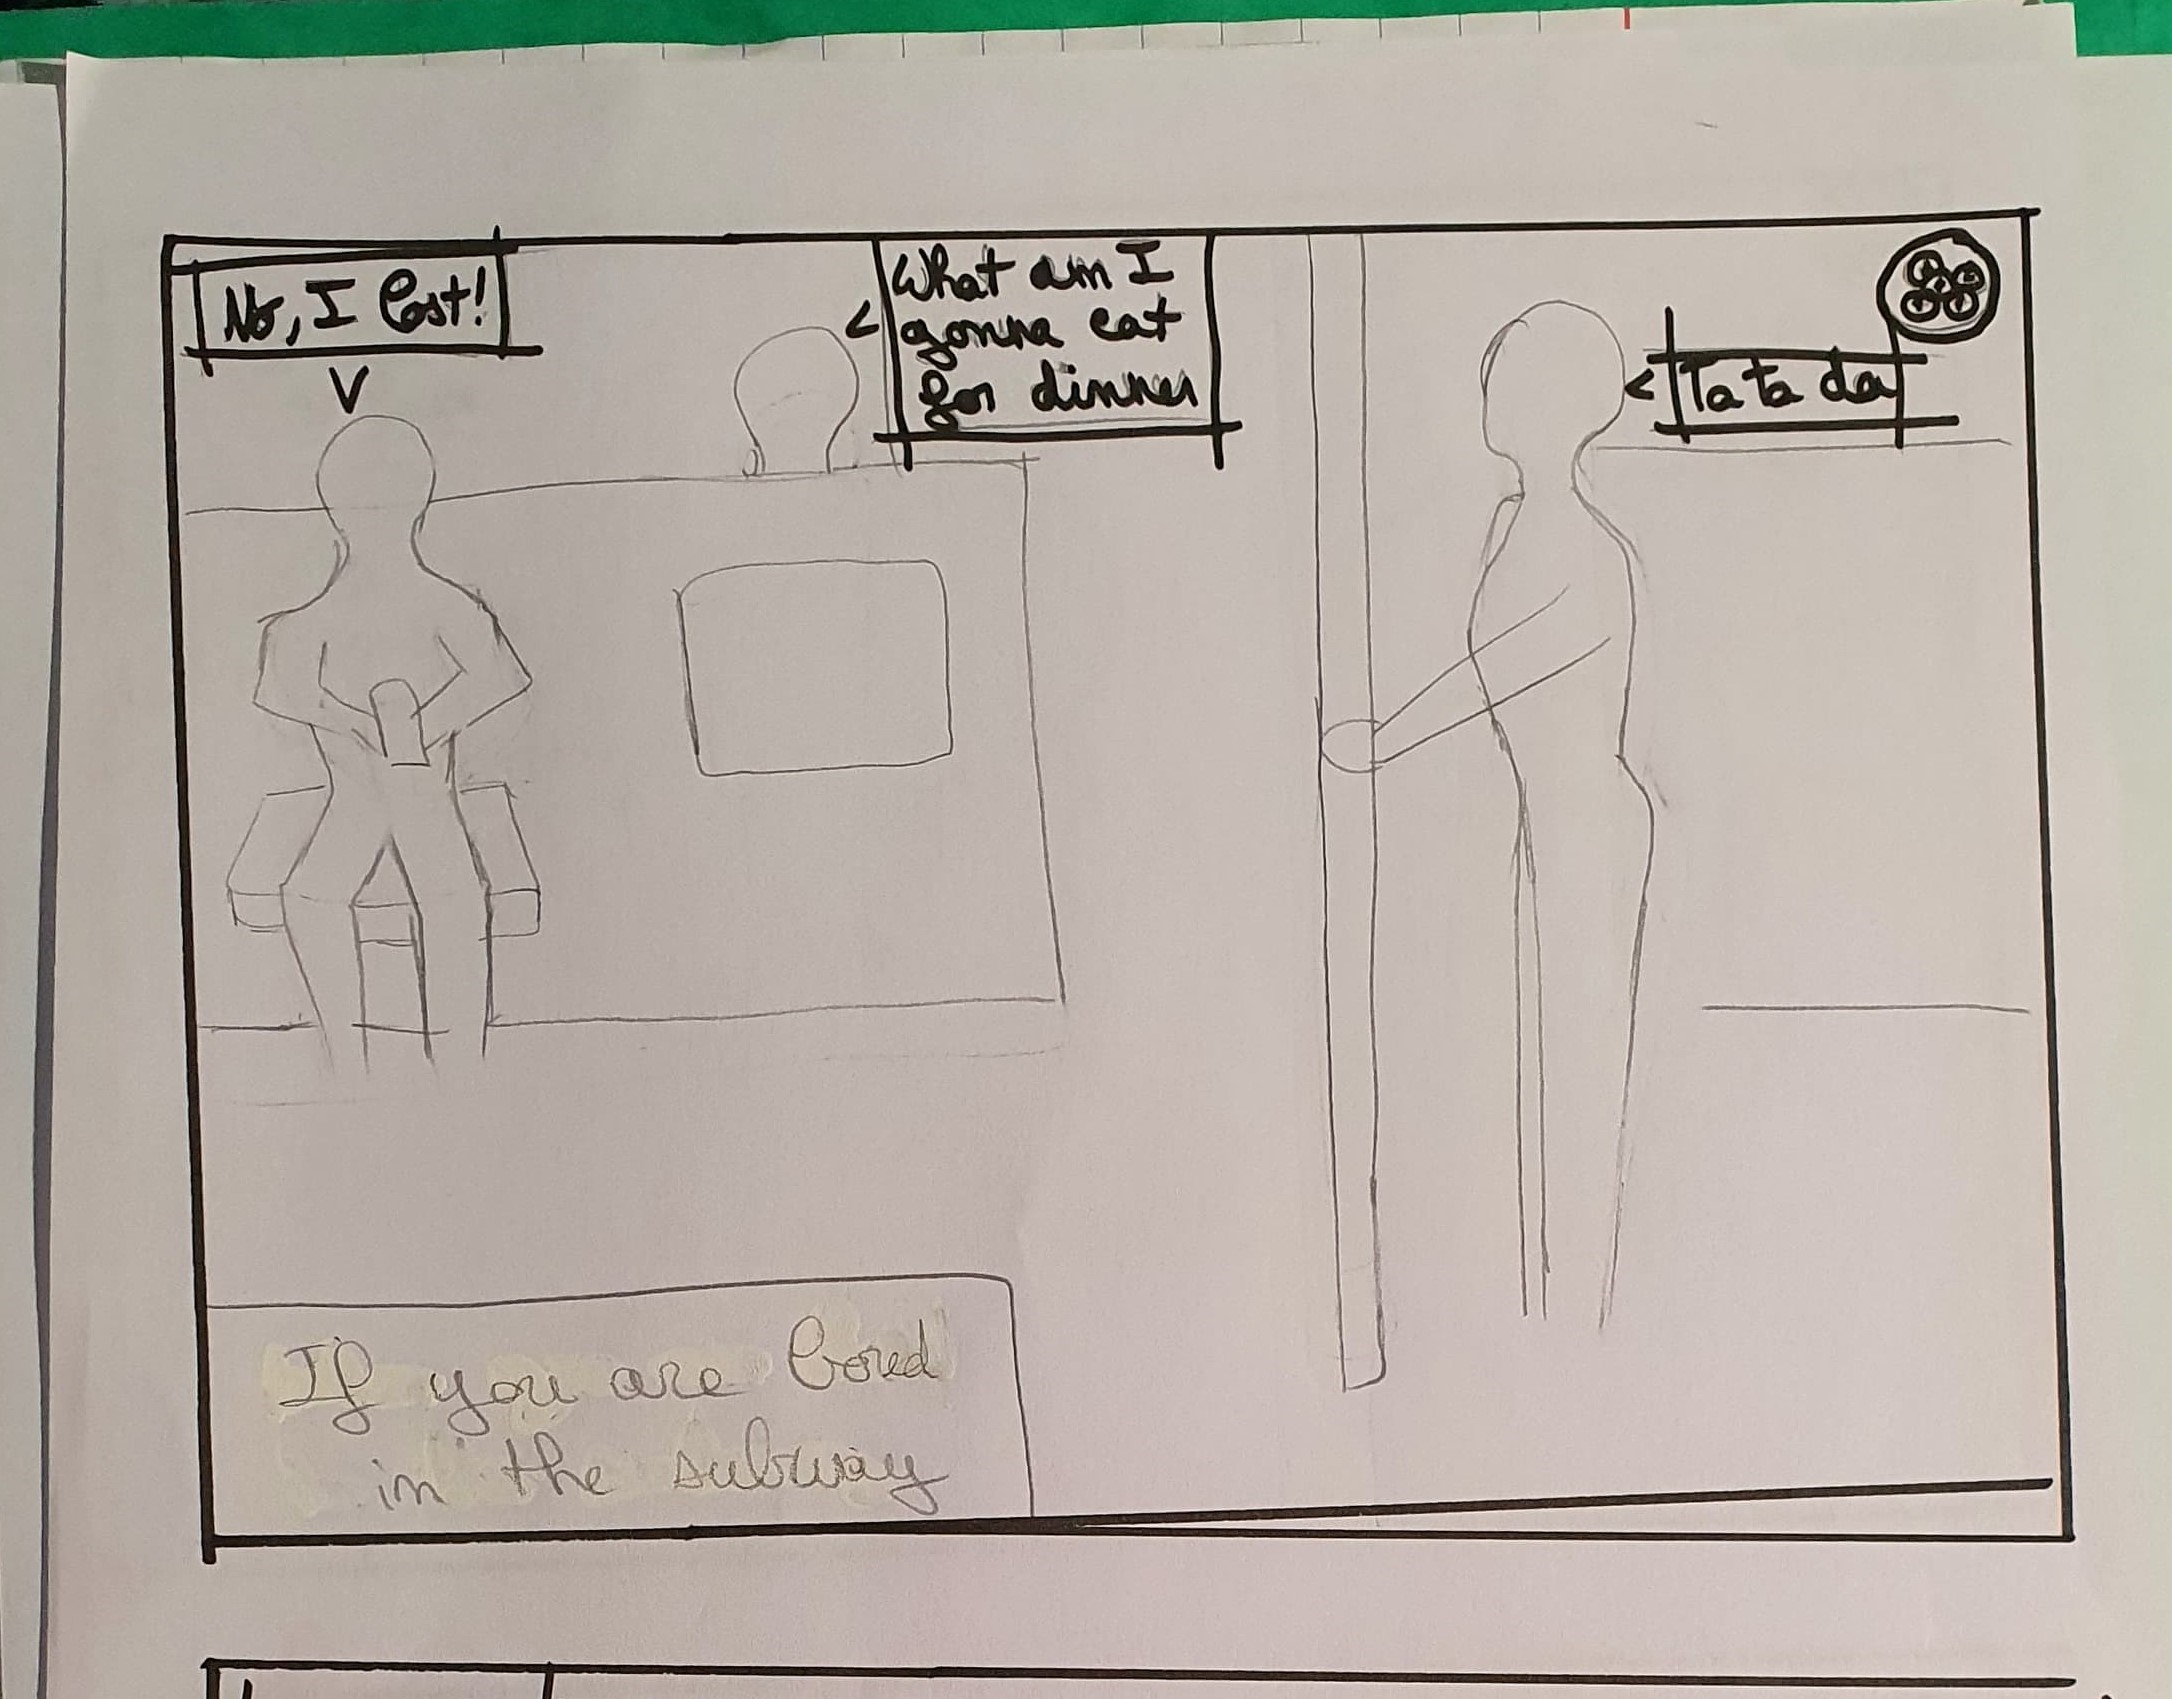 No, I lost!
What am I
gonna eat
for dinner
Ta ta da
If you are bored
in the subway